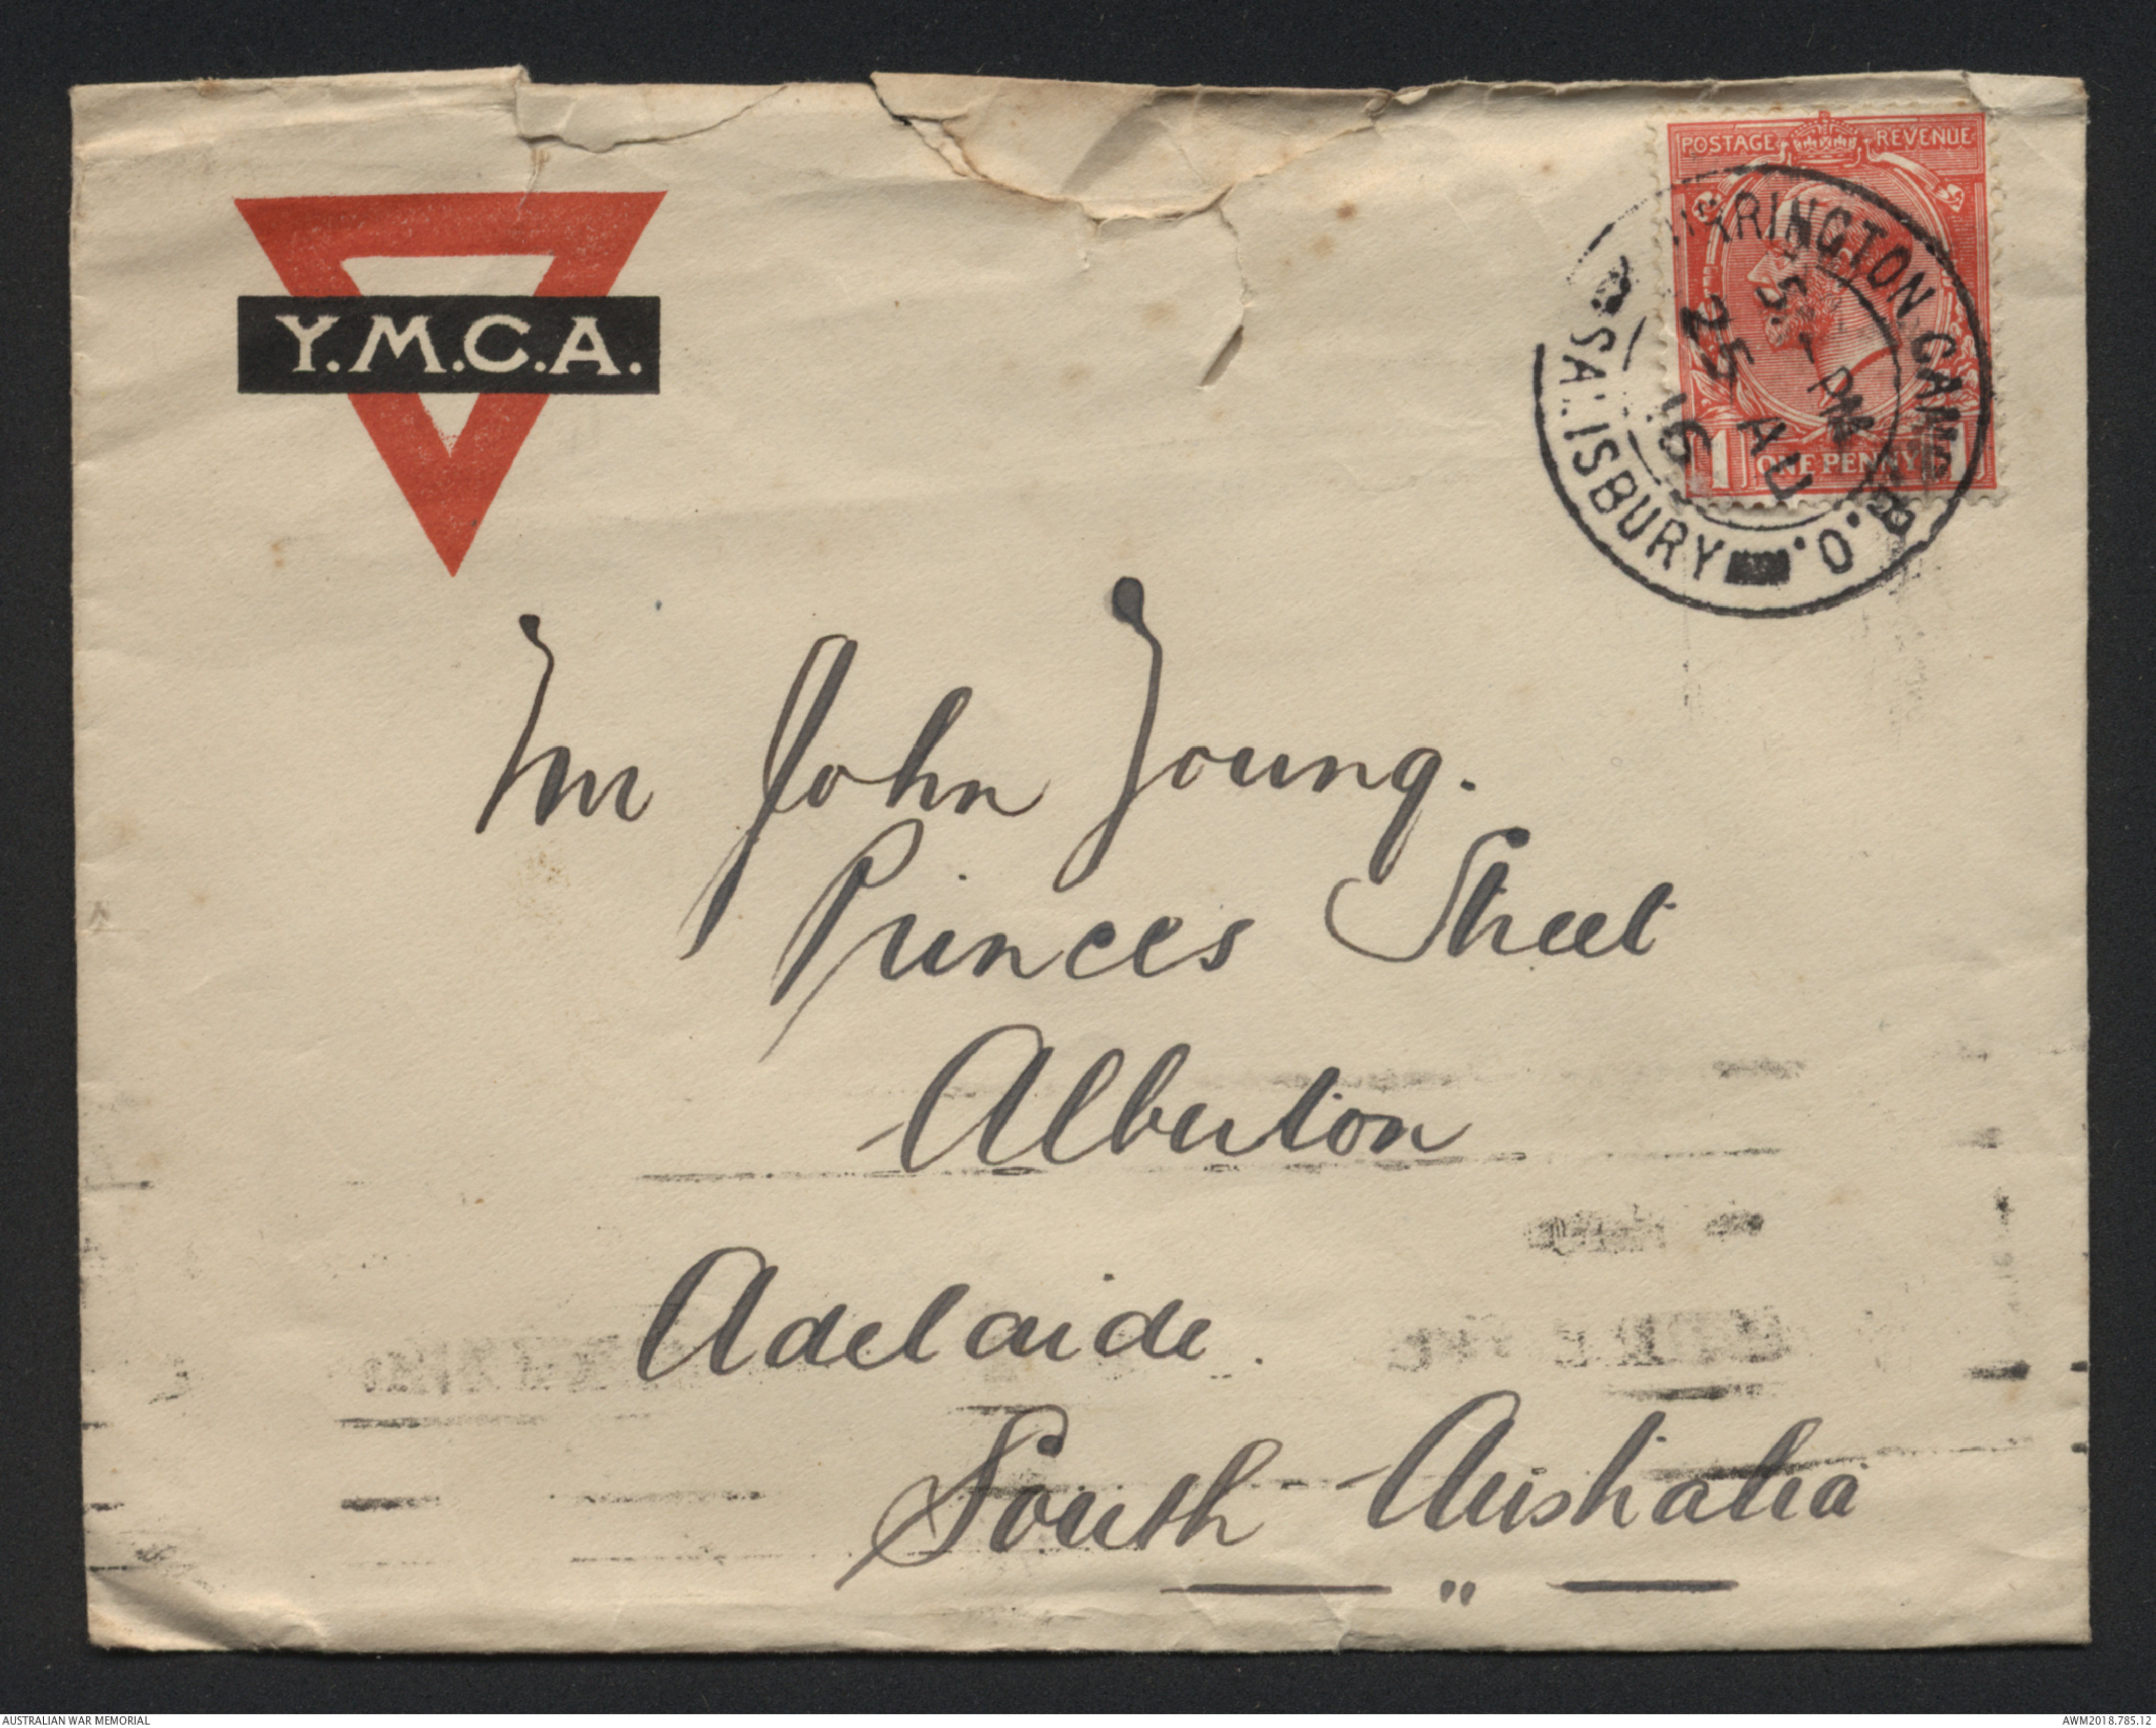 Y.M.C.A.
POSTAGE REVENUE
ONE PENNY
CAMP P.O.
SALISBURY
5 - PM
25 AU
16
Mr John Young.
Princes Street
Alberton
Adelaide.
South Australia
"
AUSTRALIAN WAR MEMORIAL
AWM2018.785.12